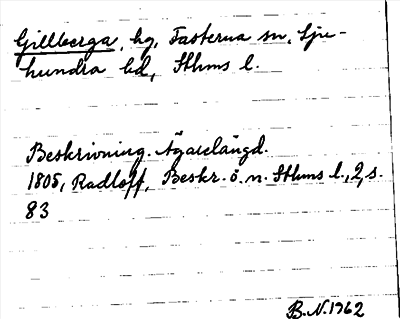 Gillberga, hg, Fasterna sn, Sju-
hundra hd, Sthms l.
Beskrivning. Ägarelängd.
1805, Radloff, Beskr. ö. n. Sthms l., 2, s.
83
B.N. 1962